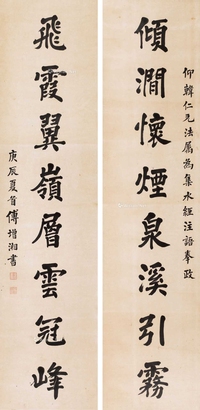 仰韓仁兄法屬為集水經注語奉政
傾澗懷煙泉溪引霧
飛霞翼嶺層雲冠峰
庚辰夏首傅增湘書